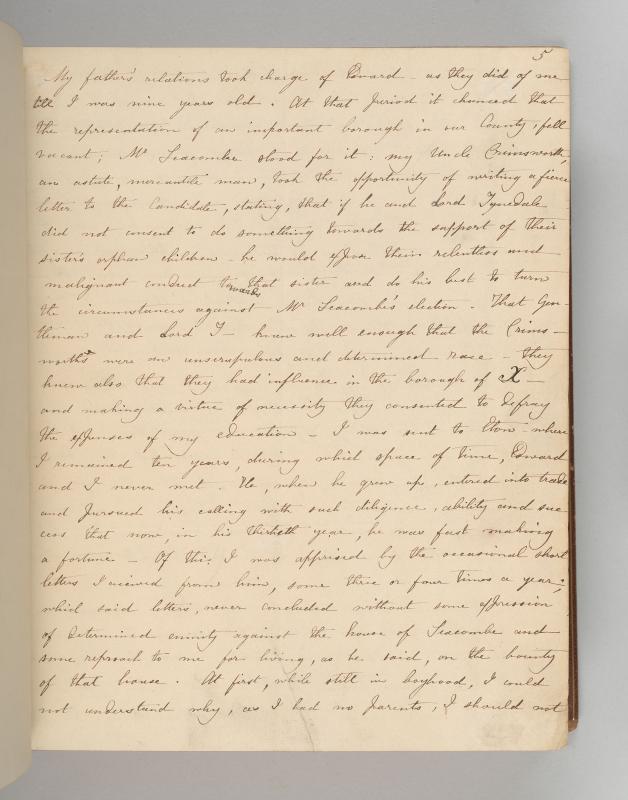 5
My father's relations took charge of Edward – as they did of me
till I was nine years old. At that period it chanced that
the representation of an important borough in our County, fell
vacant; Mr Seacombe stood for it: my Uncle Crimsworth,
an astute, mercantile man, took the opportunity of writing a fierce
letter to the Candidate, stating, that if he and Lord Tynedale
did not consent to do something towards the support of their
sister's orphan children – he would expose their relentless and
malignant conduct towards that sister and do his best to turn
the circumstances against Mr Seacombe's election. That Gen-
tleman and Lord T– knew well enough that the Crims-
worths were an unscrupulous and determined race – they
knew also that they had influence in the borough of X–
and making a virtue of necessity they consented to defray
the expenses of my education – I was sent to Eton – where
I remained ten years, during which space of time, Edward
and I never met – He, when he grew up, entered into trade
and pursued his calling with such diligence, ability and suc
cess that now, in his thirtieth year, he was fast making
a fortune – Of this I was apprised by the occasional short
letters I received from him, some three or four times a year;
which said letters, never concluded without some expression
of determined enmity against the house of Seacombe and
some reproach to me for living, as he said, on the bounty
of that house. At first, while still in boyhood, I could
not understand why, as I had no parents, I should not